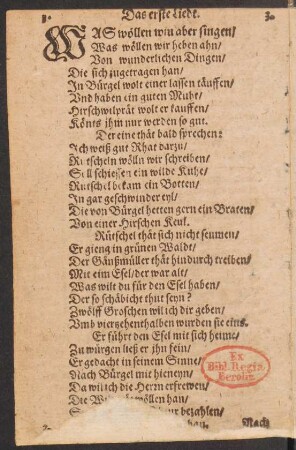 1. Das erste Liedt. 3.
WAS wöllen wir aber singen/
Was wöllen wir heben ahn/
Von wunderlichen Dingen/
Die sich zugetragen han/
In Bürgel wolt einer lassen täuffen/
Vnd haben ein guten Muht/
Hirschwilprät wolt er kauffen/
Könts jhm nur werden so gut.
Der eine thät bald sprechen:
Ich weiß gut Rhat darzu/
Rutscheln wölln wir schreiben/
Soll schiessen ein wilde Kuhe/
Rutschel bekam ein Botten/
In gar geschwinder eyl/
Die von Bürgel hetten gern ein Braten/
Von einer Hirschen Keul.
Rütschel thät sich nicht seumen/
Er gieng in grünen Waldt/
Der Gänßmüller thät hindurch treiben/
Mit eim Esel/der war alt/
Was wilt du für den Esel haben/
Der so schäbicht thut seyn?
Zwölff Groschen wil ich dir geben/
Vmb vierzehenthalben wurden sie eins.
Er führt den Esel mit sich heime/
Zu würgen ließ er jhn fein/
Er gedacht in seinem Sinne/
Nach Bürgel mit hieneyn/
Da wil ich die Herrn erfrewen/
Die wöllen han/
bezahlen/
han.
Nach
Ex
Bibl. Regia
Berolin.